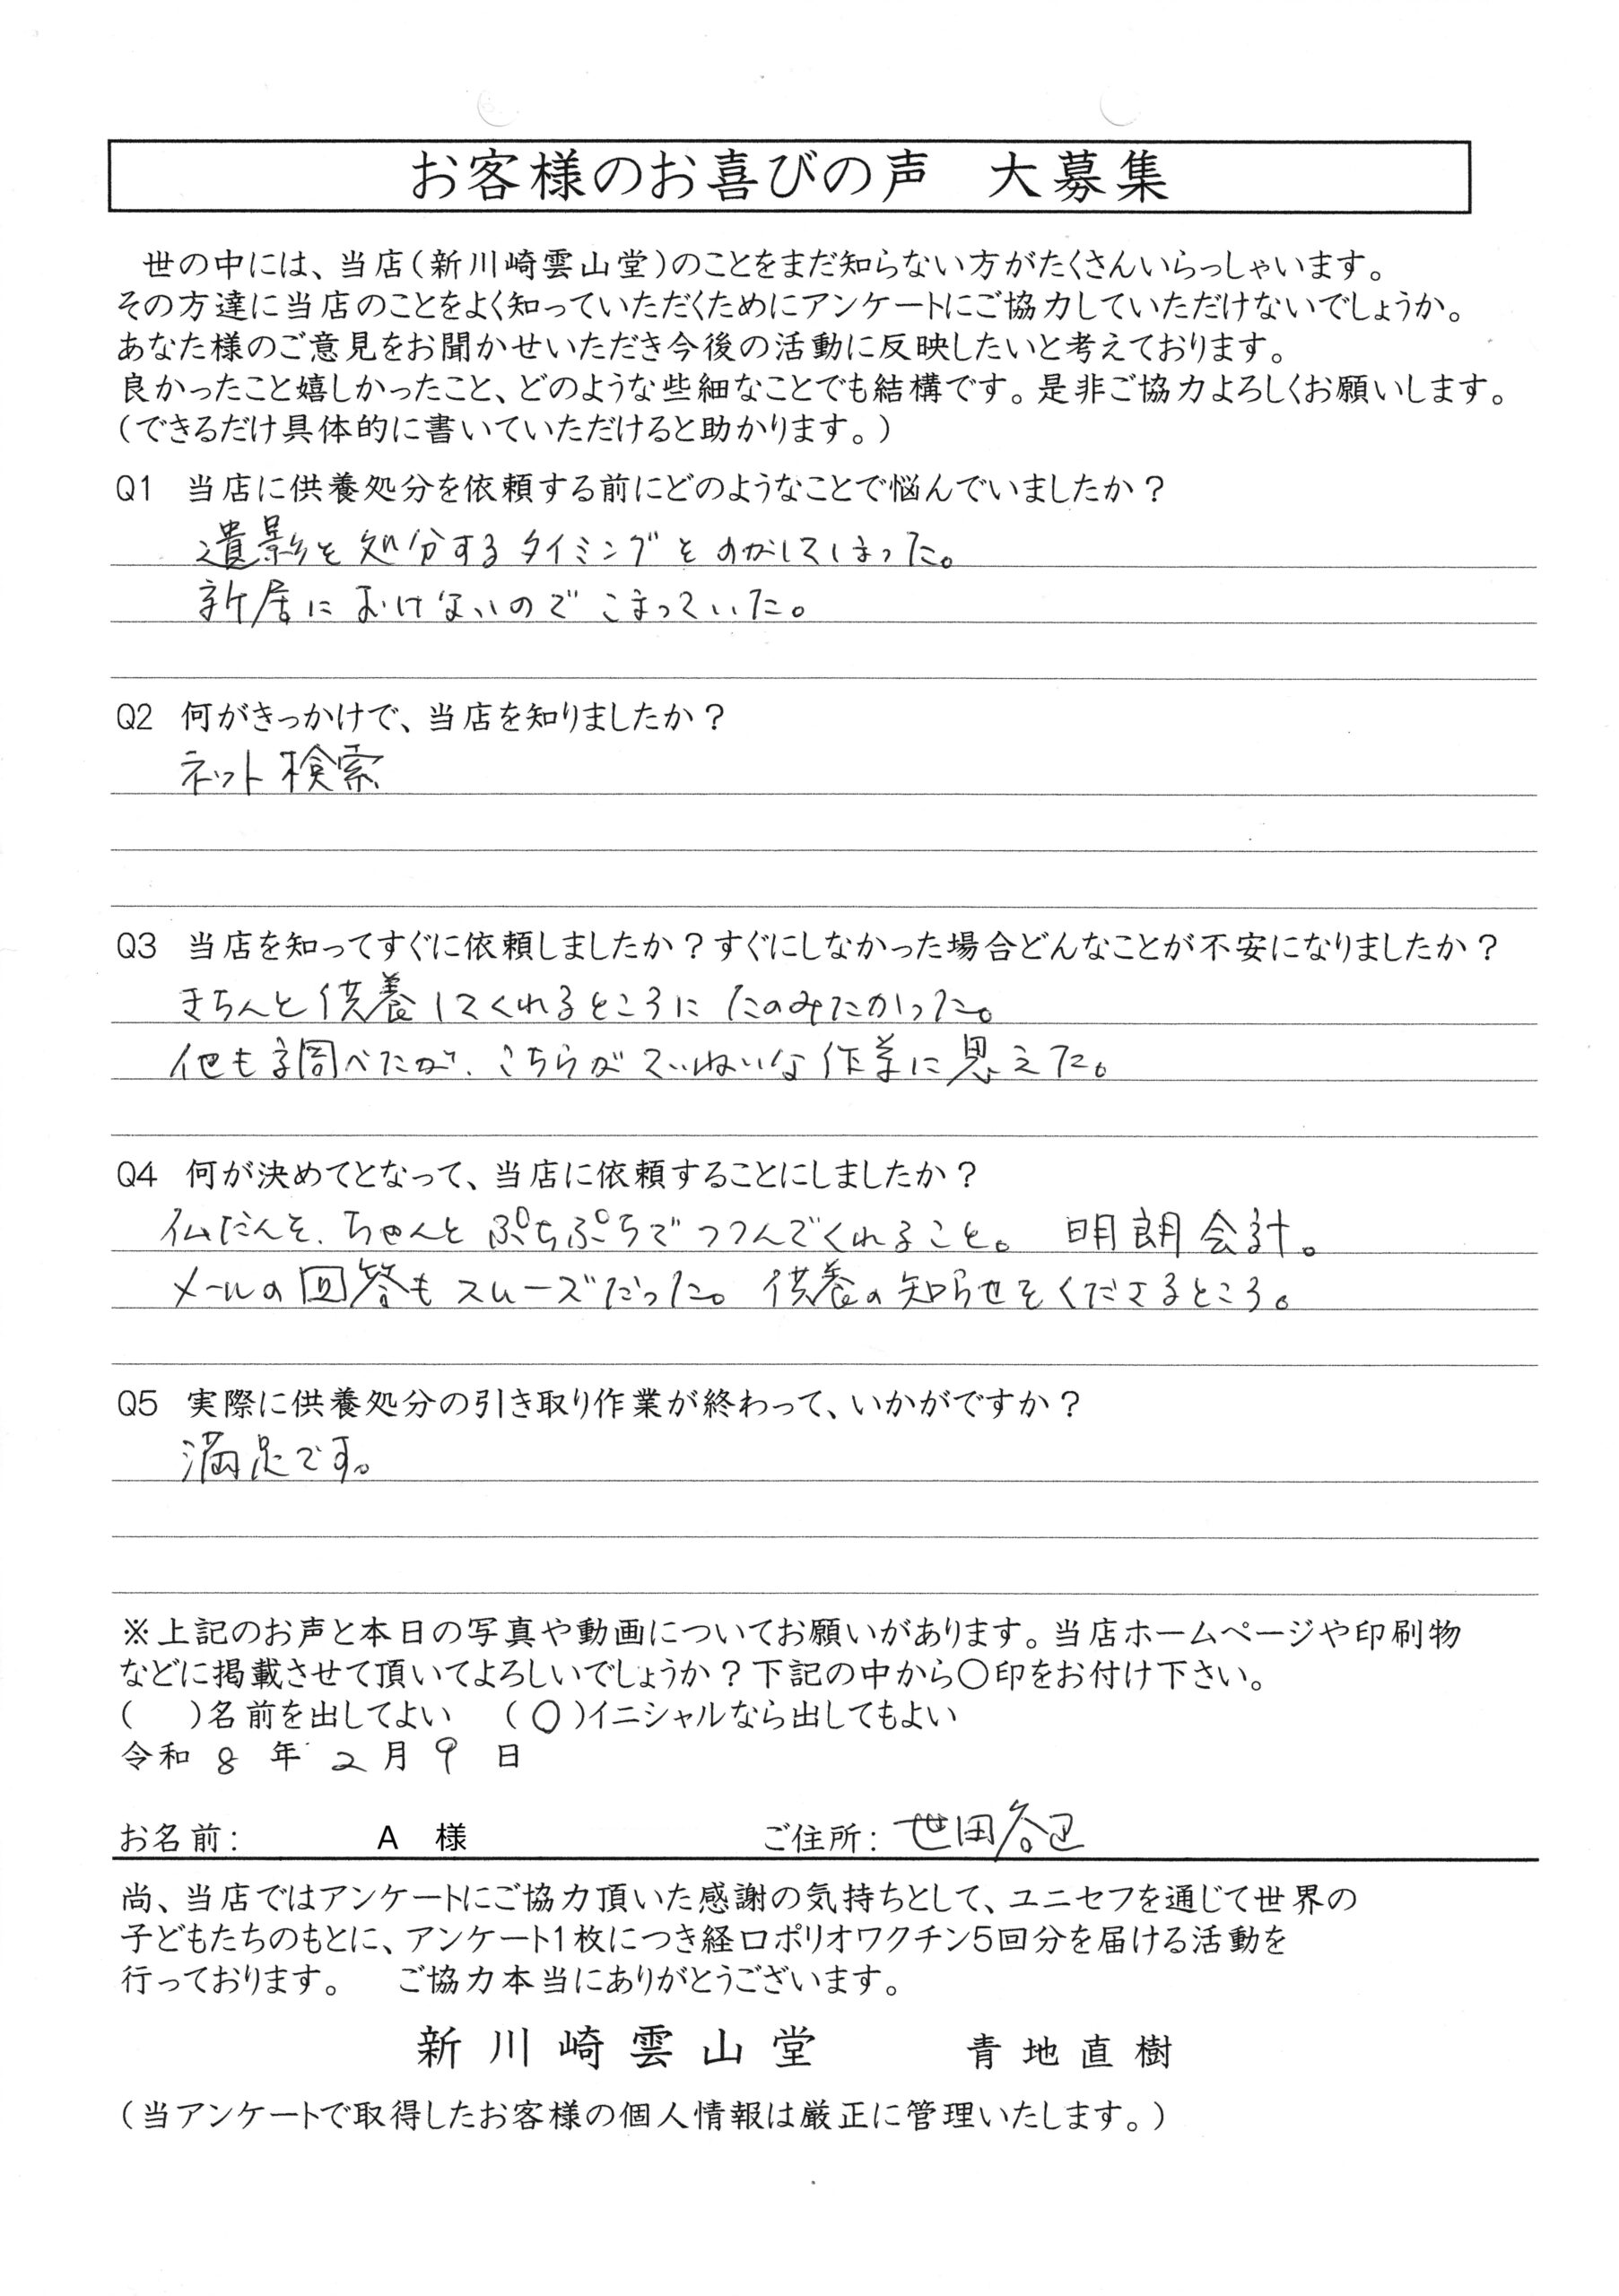 お客様のお喜びの声 大募集
世の中には、当店(新川崎雲山堂)のことをまだ知らない方がたくさんいらっしゃいます。
その方達に当店のことをよく知っていただくためにアンケートにご協力していただけないでしょうか。
あなた様のご意見をお聞かせいただき今後の活動に反映したいと考えております。
良かったこと嬉しかったこと、どのような些細なことでも結構です。是非ご協力よろしくお願いします。
(できるだけ具体的に書いていただけると助かります。)
Q1 当店に供養処分を依頼する前にどのようなことで悩んでいましたか?
遺影を処分するタイミングをのがしてしまった。
新居におけないのでこまっていた。
Q2 何がきっかけで、当店を知りましたか?
ネット検索
Q3 当店を知ってすぐに依頼しましたか?すぐにしなかった場合どんなことが不安になりましたか?
きちんと供養してくれるところにたのみたかった。
他も調べたが、こちらがていねいな作業に思えた。
Q4 何が決めてとなって、当店に依頼することにしましたか?
仏だんを、ちゃんとぷちぷちでつつんでくれること。 明朗会計。
メールの回答もスムーズだった。供養の知らせをくださるところ。
Q5 実際に供養処分の引き取り作業が終わって、いかがですか?
満足です。
※上記のお声と本日の写真や動画についてお願いがあります。当店ホームページや印刷物
などに掲載させて頂いてよろしいでしょうか?下記の中から〇印をお付け下さい。
( )名前を出してよい (〇)イニシャルなら出してもよい
令和 8 年 2 月 9 日
お名前: A 様 ご住所: 世田谷区
尚、当店ではアンケートにご協力頂いた感謝の気持ちとして、ユニセフを通じて世界の
子どもたちのもとに、アンケート1枚につき経口ポリオワクチン5回分を届ける活動を
行っております。 ご協力本当にありがとうございます。
新川崎雲山堂 青地直樹
(当アンケートで取得したお客様の個人情報は厳正に管理いたします。)